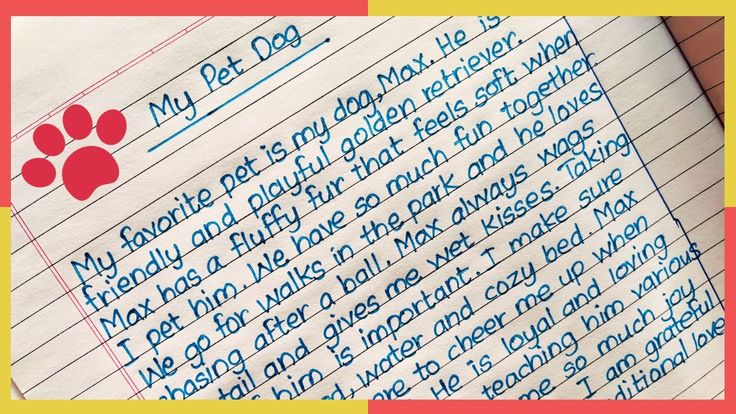 My Pet Dog
My favorite pet is my dog, Max. He is
friendly and playful golden retriever.
Max has a fluffy fur that feels soft when
I pet him. We have so much fun together
We go for walks in the park and he loves
chasing after a ball. Max always wags
tail and gives me wet kisses. Taking
him is important. I make sure
water and cozy bed. Max
to cheer me up when
He is loyal and loving
teaching him various
me so much joy
I am grateful
love